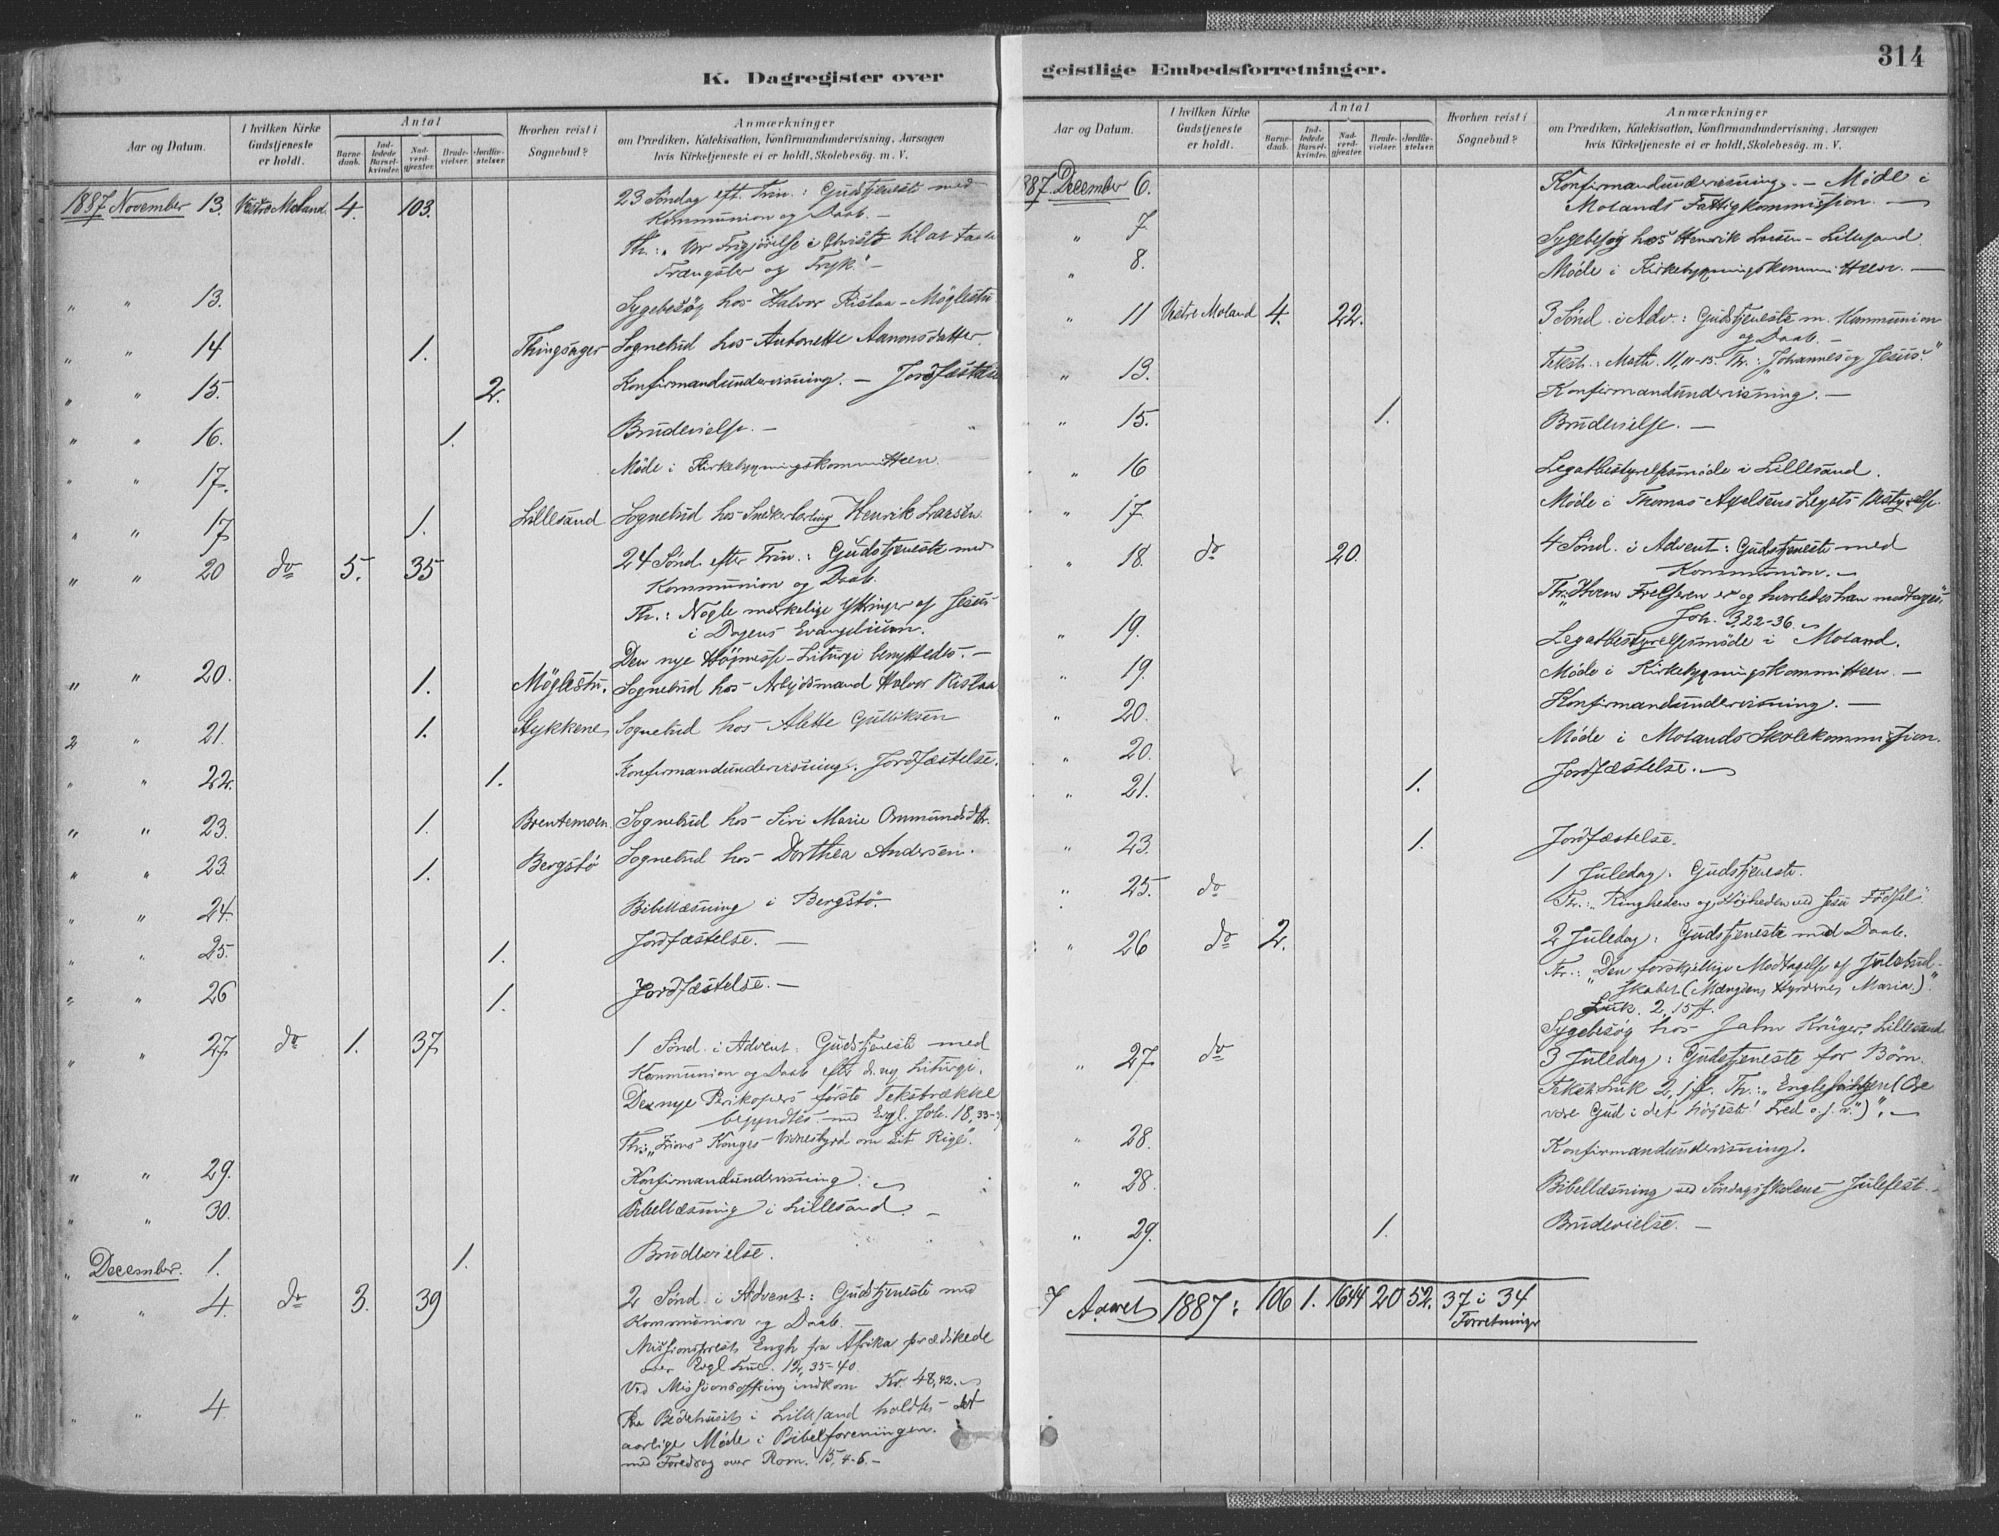 314
K. Dagregister over
geistlige Embedsforretninger.
Aar og Datum.
I hvilken Kirke
Gudstjeneste
er holdt.
Antal
Barne-
daab.
Ind-
ledede
Barsel-
kvinder.
Nad-
verd-
gjæster.
Brude-
vielser.
Jordfæ-
stelser.
Hvorhen reist i
Sognebud?
Anmærkninger
om Prædiken, Katekisation, Konfirmandundervisning, Aarsagen
hvis Kirketjeneste ei er holdt, Skolebesøg. m. V.
1887 November 13. Vestre Moland 4. 103. 23 Søndag eft. Trin.: Gudstjeneste med
Kommunion og Daab. —
Th.: „Vor Frigjørelse i Christo til at taale
Trængsler og Tryk." —
„ „ 13. Sygebesøg hos Halvor Rislaa - Møglestu
„ „ 14 1. Thingsager Sognebud hos Antonette Aanonsdatter.
„ „ 15. 2. Konfirmandundervisning. — Jordfæstelse
„ „ 16. 1. Brudevielse. —
„ „ 17. Møde i Kirkebygningskommitteen.
„ „ 17 1. Lillesand Sognebud hos Snekkerlærling Henrik Larsen
„ „ 20 do 5. 35 24 Sønd. efter Trin.: Gudstjeneste med
Kommunion og Daab.
Th.: Nogle mærkelige Ytringer af Jesus
i Dagens Evangelium.
Den nye Høimesse-Liturgi benyttedes. —
„ „ 20. 1. Møglestu. Sognebud hos Arbeidsmand Halvor Rislaa
„ „ 21. 1. Stykkene Sognebud hos Alette Gulliksen
„ „ 22. 1. Konfirmandundervisning. Jordfæstelse.
„ „ 23. 1. Brentemoen Sognebud hos Siri Marie Ommundsdtr.
„ „ 23. 1. Bergstø Sognebud hos Dorthea Andersen.
„ „ 24. Bibellæsning i Bergstø
„ „ 25. 1. Jordfæstelse. —
„ „ 26 1. Jordfæstelse. —
„ „ 27 do 1. 37 1 Sønd. i Advent. Gudstjeneste med
Kommunion og Daab efter d. ny Liturgi.
Den nye Perikopers første Tekstrække
begyndtes med Evgl. Joh. 18, 33-
Th.: „Zions Konges Vidnesbyrd om sit Rige."
„ „ 29. Konfirmandundervisning. —
„ „ 30. Bibellæsning i Lillesand. —
„ December. 1. 1. Brudevielse.
„ „ 4. do 3. 39 2 Sønd. i Advent: Gudstjeneste med
Kommunion og Daab. —
Missionsprest Engh fra Afrika prædikede
over Evgl. Luc. 12, 35-40
Ved Missionsofring indkom Kr. 48,42. —
„ „ 4 Paa Bedehuset i Lillesand holdtes det
aarlige Møde i Bibelforeningen.
med Foredrag over Rom. 15, 4-6. —
Aar og Datum.
I hvilken Kirke
Gudstjeneste
er holdt.
Antal
Barne-
daab.
Ind-
ledede
Barsel-
kvinder.
Nad-
verd-
gjæster.
Brude-
vielser.
Jordfæ-
stelser.
Hvorhen reist i
Sognebud?
Anmærkninger
om Prædiken, Katekisation, Konfirmandundervisning, Aarsagen
hvis Kirketjeneste ei er holdt, Skolebesøg. m. V.
1887 December 6. Konfirmandundervisning. — Møde i
Molands Fattigkommission. —
„ 7 Sygebesøg hos Henrik Larsen - Lillesand
„ 8. Møde i Kirkebygningskommitteen. —
„ 11 Vestre Moland 4. 22. 3 Sønd. i Adv.: Gudstjeneste m. Kommunion
og Daab. —
Tekst: Math. 11, 11-15. Th.: „Johannes og Jesus."
„ 13. Konfirmandundervisning. —
„ 15. 1. Brudevielse. —
„ 16 Legatbestyrelsesmøde i Lillesand.
„ 17. Møde i Thomas Axelsens Legats Bestyrelse.
„ 18. do 20. 4 Sønd. i Advent: Gudstjeneste med
Kommunion. —
Th.: „Hvem Frelseren er og hvorledes han modtages".
Joh. 3, 22-36. —
„ 19. Legatbestyrelsesmøde i Moland.
„ 19. Møde i Kirkebygningskommitteen. —
„ 20. Konfirmandundervisning. —
„ 20. Møde i Molands Skolekommission.
„ 21. 1. Jordfæstelse. —
„ 23. 1. Jordfæstelse.
„ 25. do 1 Juledag. Gudstjeneste.
Th.: „Ringheden og Høiheden ved Jesu Fødsel."
„ 26 do 2. 2 Juledag: Gudstjeneste med Daab.
Th.: „Den forskjellige Modtagelse af Julebud-
skabet (Mængden, Hyrderne, Maria)."
Luk. 2, 15 ff.
Sygebesøg hos Krüger, Lillesand
„ 27. do 3 Juledag: Gudstjeneste for Børn.
Tekst: Luk 2, 1 ff. Th.: „Englesangen (Ære
være Gud i det høieste! Fred o.s.v.)". —
„ 28. Konfirmandundervisning.
„ 28. Bibellæsning ved Søndagsskolens Julefest. —
„ 29. 1. Brudevielse. —
I Aaret 1887: 106 1. 1644 20 52. 37 i 34
Forretninger